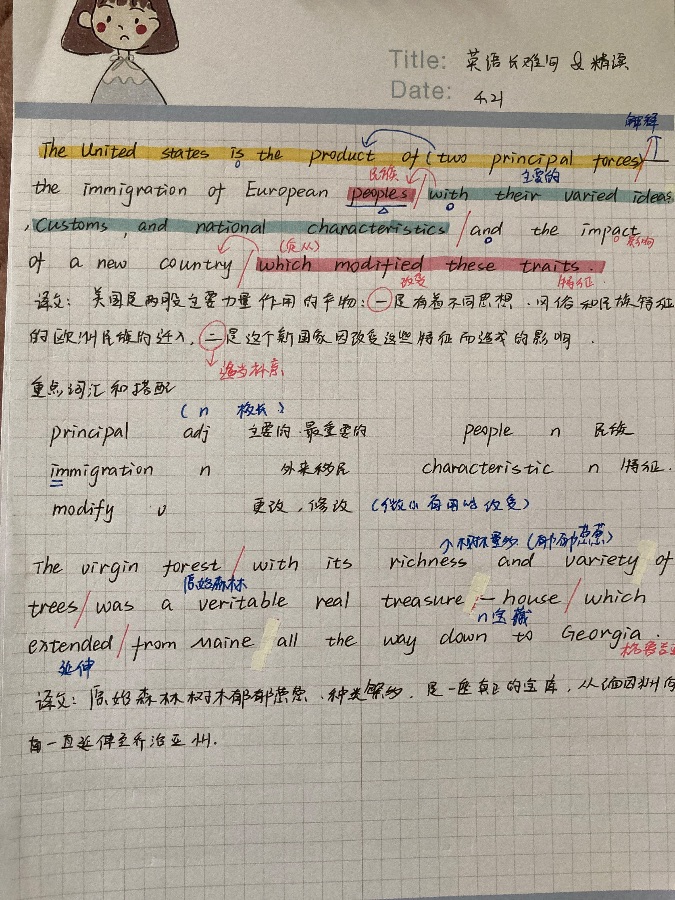 Title: 英语长难句 & 精读
Date: 4.21
解释
The United states is the product of (two principal forces)
民族 主要的
the immigration of European peoples / with their varied ideas
, customs, and national characteristics / and the impact
(定从) 影响
of a new country / which modified these traits.
改变 特征
译文: 美国是两股主要力量作用的产物: 一是有着不同思想、风俗和民族特征
的欧洲民族的迁入, 二是这个新国家因改变这些特征而造成的影响.
适当补充
重点词汇和搭配
(n 校长)
principal adj 主要的 最重要的 people n 民族
immigration n 外来移民 characteristic n 特征.
modify v 更改, 修改 (做小而有用的改变)
个树木繁多 (郁郁葱葱)
The virgin forest / with its richness and variety of
原始森林
trees / was a veritable real treasure - house / which
n 宝藏
extended / from Maine all the way down to Georgia.
延伸
译文: 原始森林树木郁郁葱葱、种类繁多, 是一座真正的宝库, 从缅因州向
南一直延伸至乔治亚州.